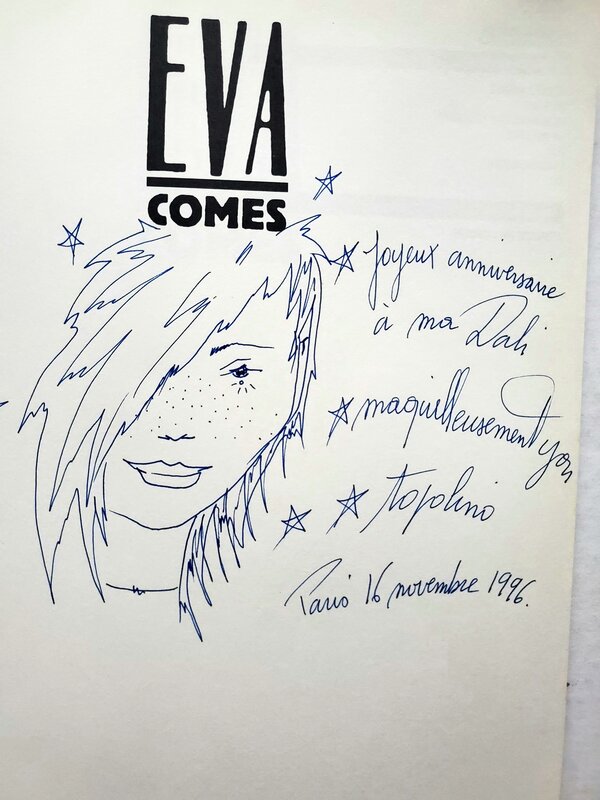 EVA
COMES
Joyeux anniversaire
à ma Dali
maquilleusement
your
topolino
Paris 16 novembre 1996.